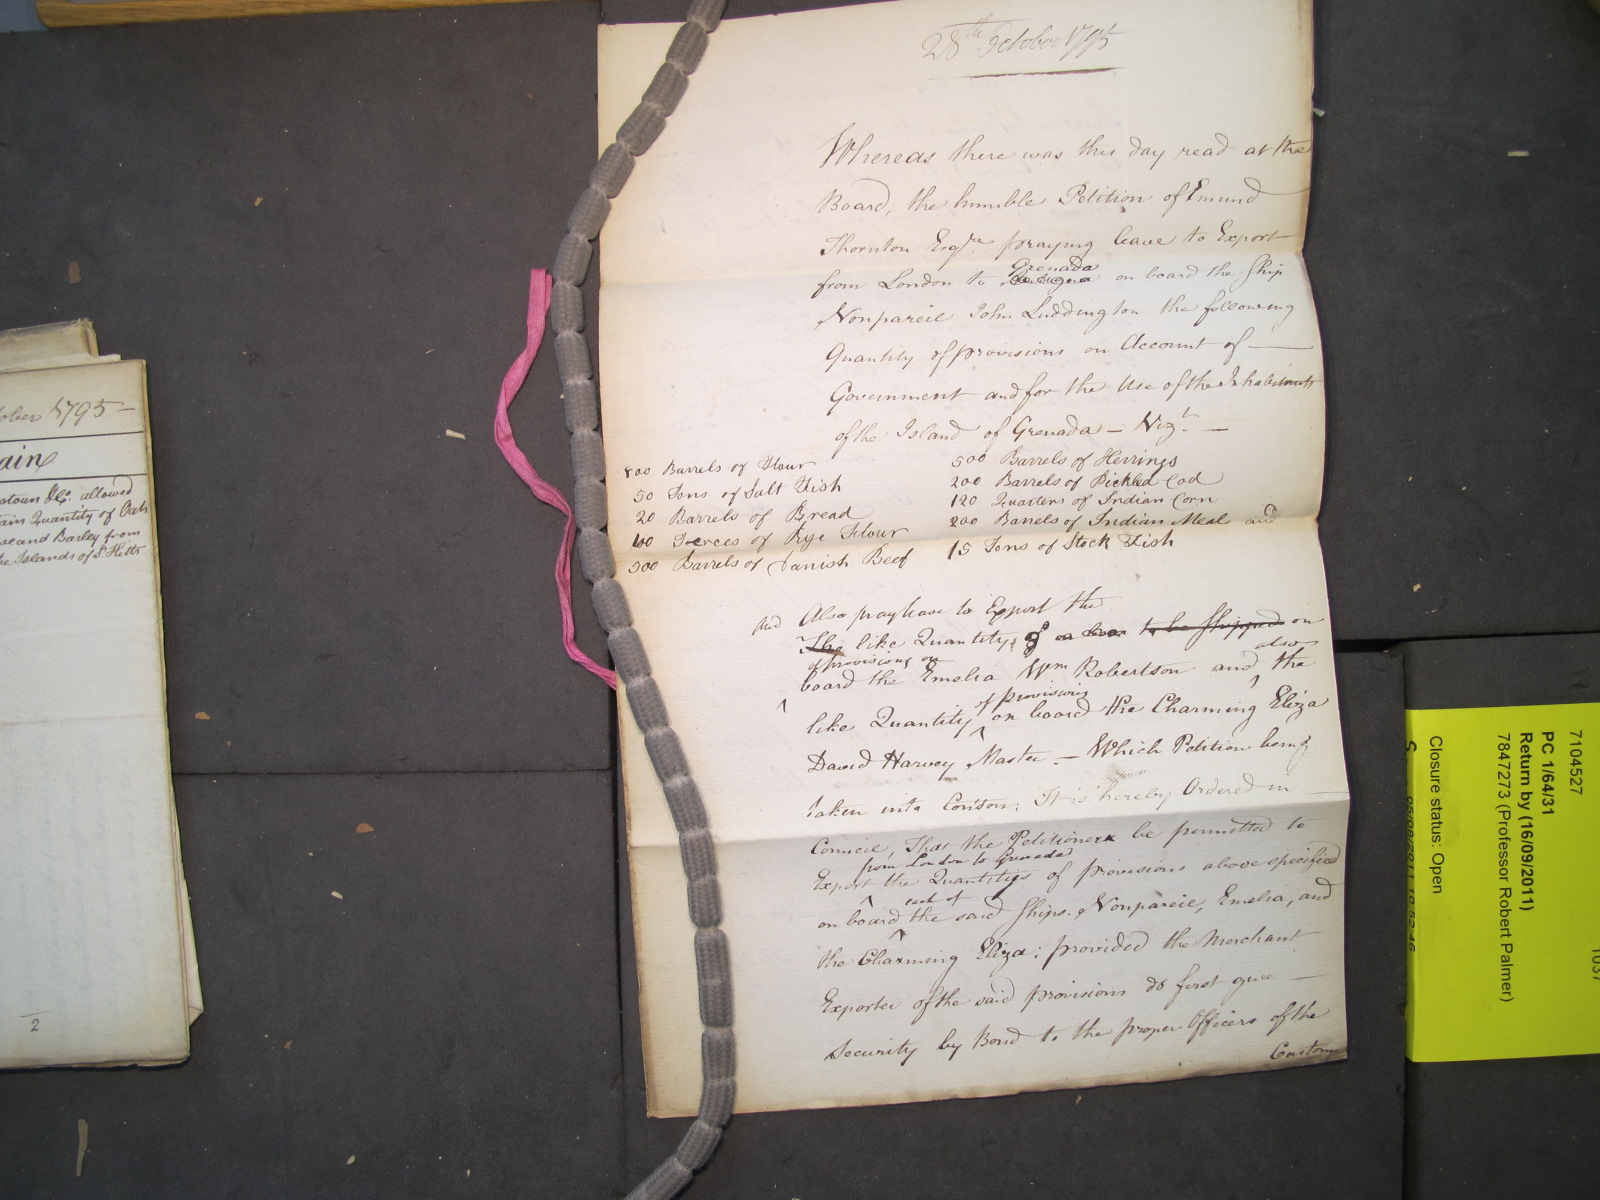 28th October 1795
Whereas there was this day read at the
Board, the humble Petition of Emund
Thornton Esqre praying leave to Export
Grenada
from London to on board the Ship
Nonpareil John Luddington the following
Quantity of provisions on Account of —
Government and for the Use of the Inhabitants
of the Island of Grenada — Vizt. —
800 Barrels of Flour
50 Tons of Salt Fish
20 Barrels of Bread
100 Tierces of Rye Flour
500 Barrels of Danish Beef
500 Barrels of Herrings
200 Barrels of Pickled Cod
120 Quarters of Indian Corn
200 Barrels of Indian Meal and
15 Tons of Stock Fish
And Also pray leave to Export the
The like Quantity of to be shipped on
of provisions on also
board the Emelia Wm Robertson and the
of provisions
like Quantity on board the Charming Eliza
David Harvey Master — Which Petition being
taken into Conson; It is hereby Ordered in —
Council, That the Petitioner be permitted to
from London to Grenada
Export the Quantities of provisions above specified
each of
on board the said Ships. Nonpareil, Emelia, and
the Charming Eliza; provided the Merchant
Exporter of the said provisions do first give —
Security by Bond to the proper Officers of the
Customs
ober 1795 —
ain
otoun &Co. allowed
ain Quantity of Oats
se and Barley from
he Islands of St. Kitts
2
7104527
PC 1/64/31
Return by (16/09/2011)
7847273 (Professor Robert Palmer)
Closure status: Open
05/09/2011 10:52:46
1037